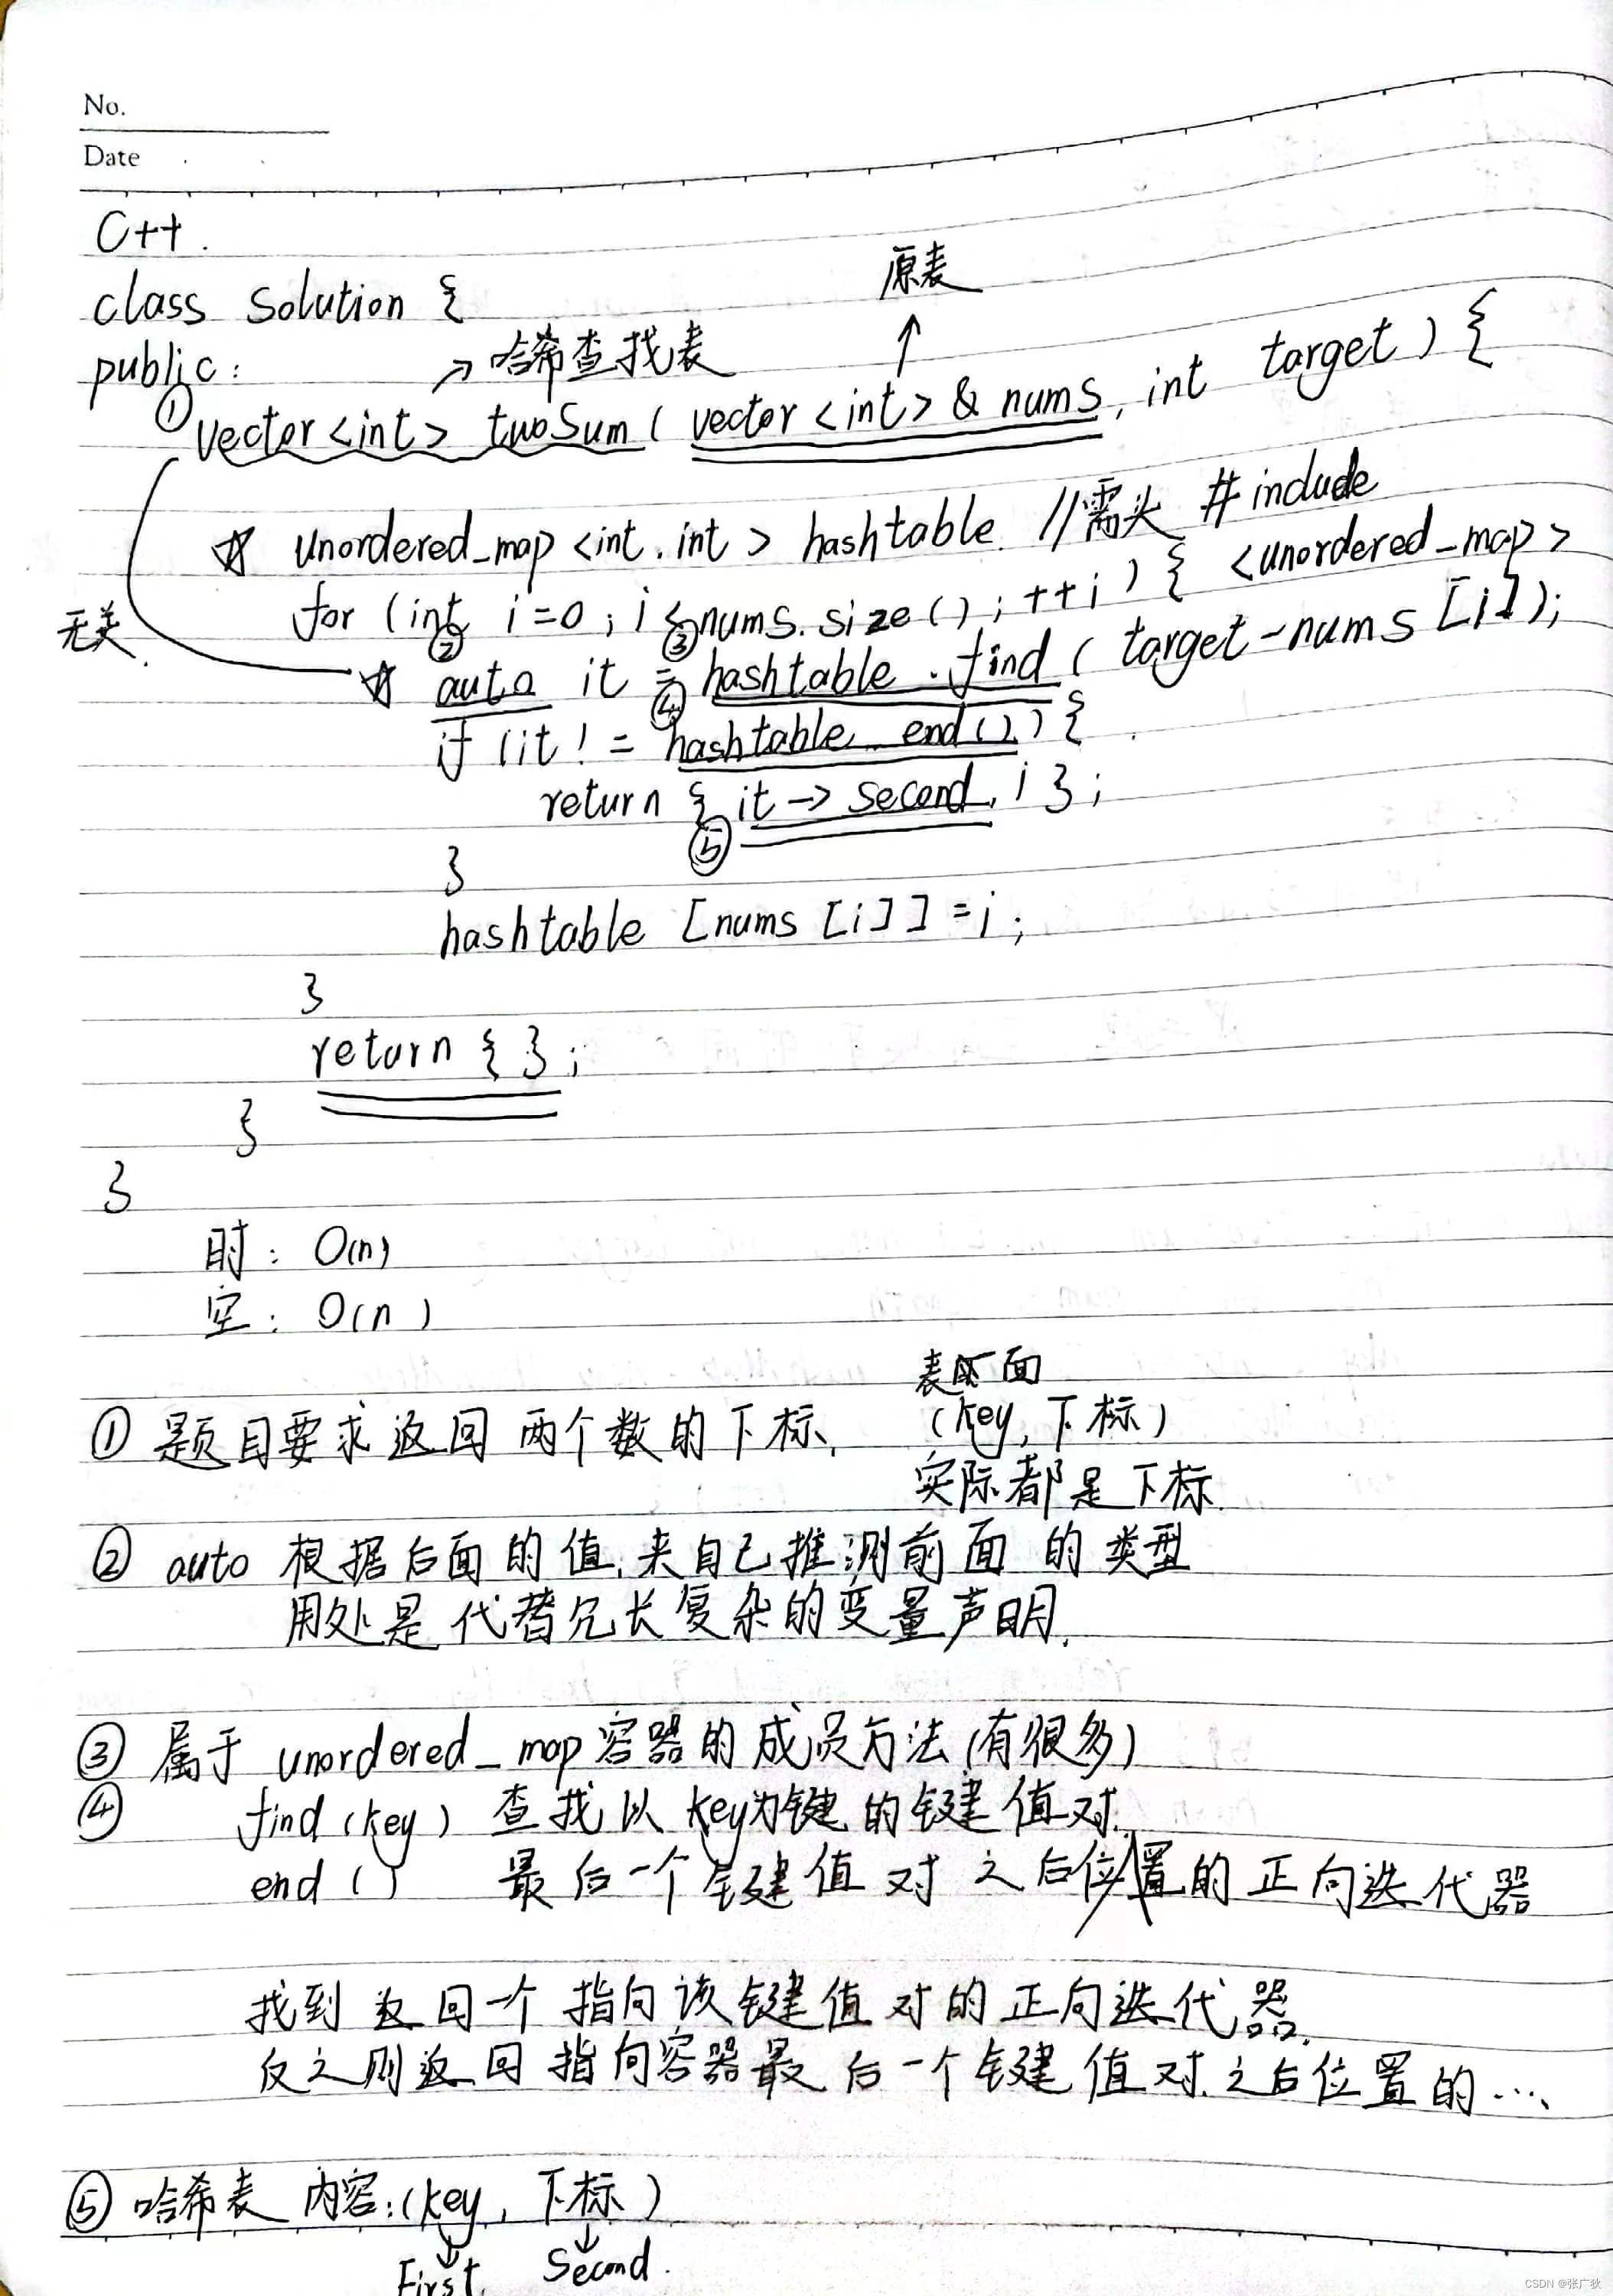 No.
Date
C++.
class Solution {
原表
public:
→哈希查找表
①
vector<int> twoSum ( vector<int> & nums, int target ) {
☆ unordered_map <int,int> hashtable. //需头 #include
<unordered_map>
for (int i=0; i<nums.size(); ++i) {
无关.
② ③
☆ auto it = hashtable.find ( target-nums [i]);
④
if (it != hashtable.end()) {
return { it -> second, i };
⑤
}
hashtable [nums [i]] = i;
}
return { };
}
}
时: O(n)
空: O(n)
表面
① 题目要求返回两个数的下标, (key, 下标)
实际都是下标.
② auto 根据后面的值,来自己推测前面的类型
用处是代替冗长复杂的变量声明.
③ 属于 unordered_map 容器的成员方法(有很多)
④ find(key) 查找以key为键的键值对.
end() 最后一个键值对之后位置的正向迭代器
找到返回一个指向该键值对的正向迭代器.
反之则返回指向容器最后一个键值对之后位置的…
⑤ 哈希表 内容:(key, 下标)
↓ ↓
First. Second.
CSDN @张广狄